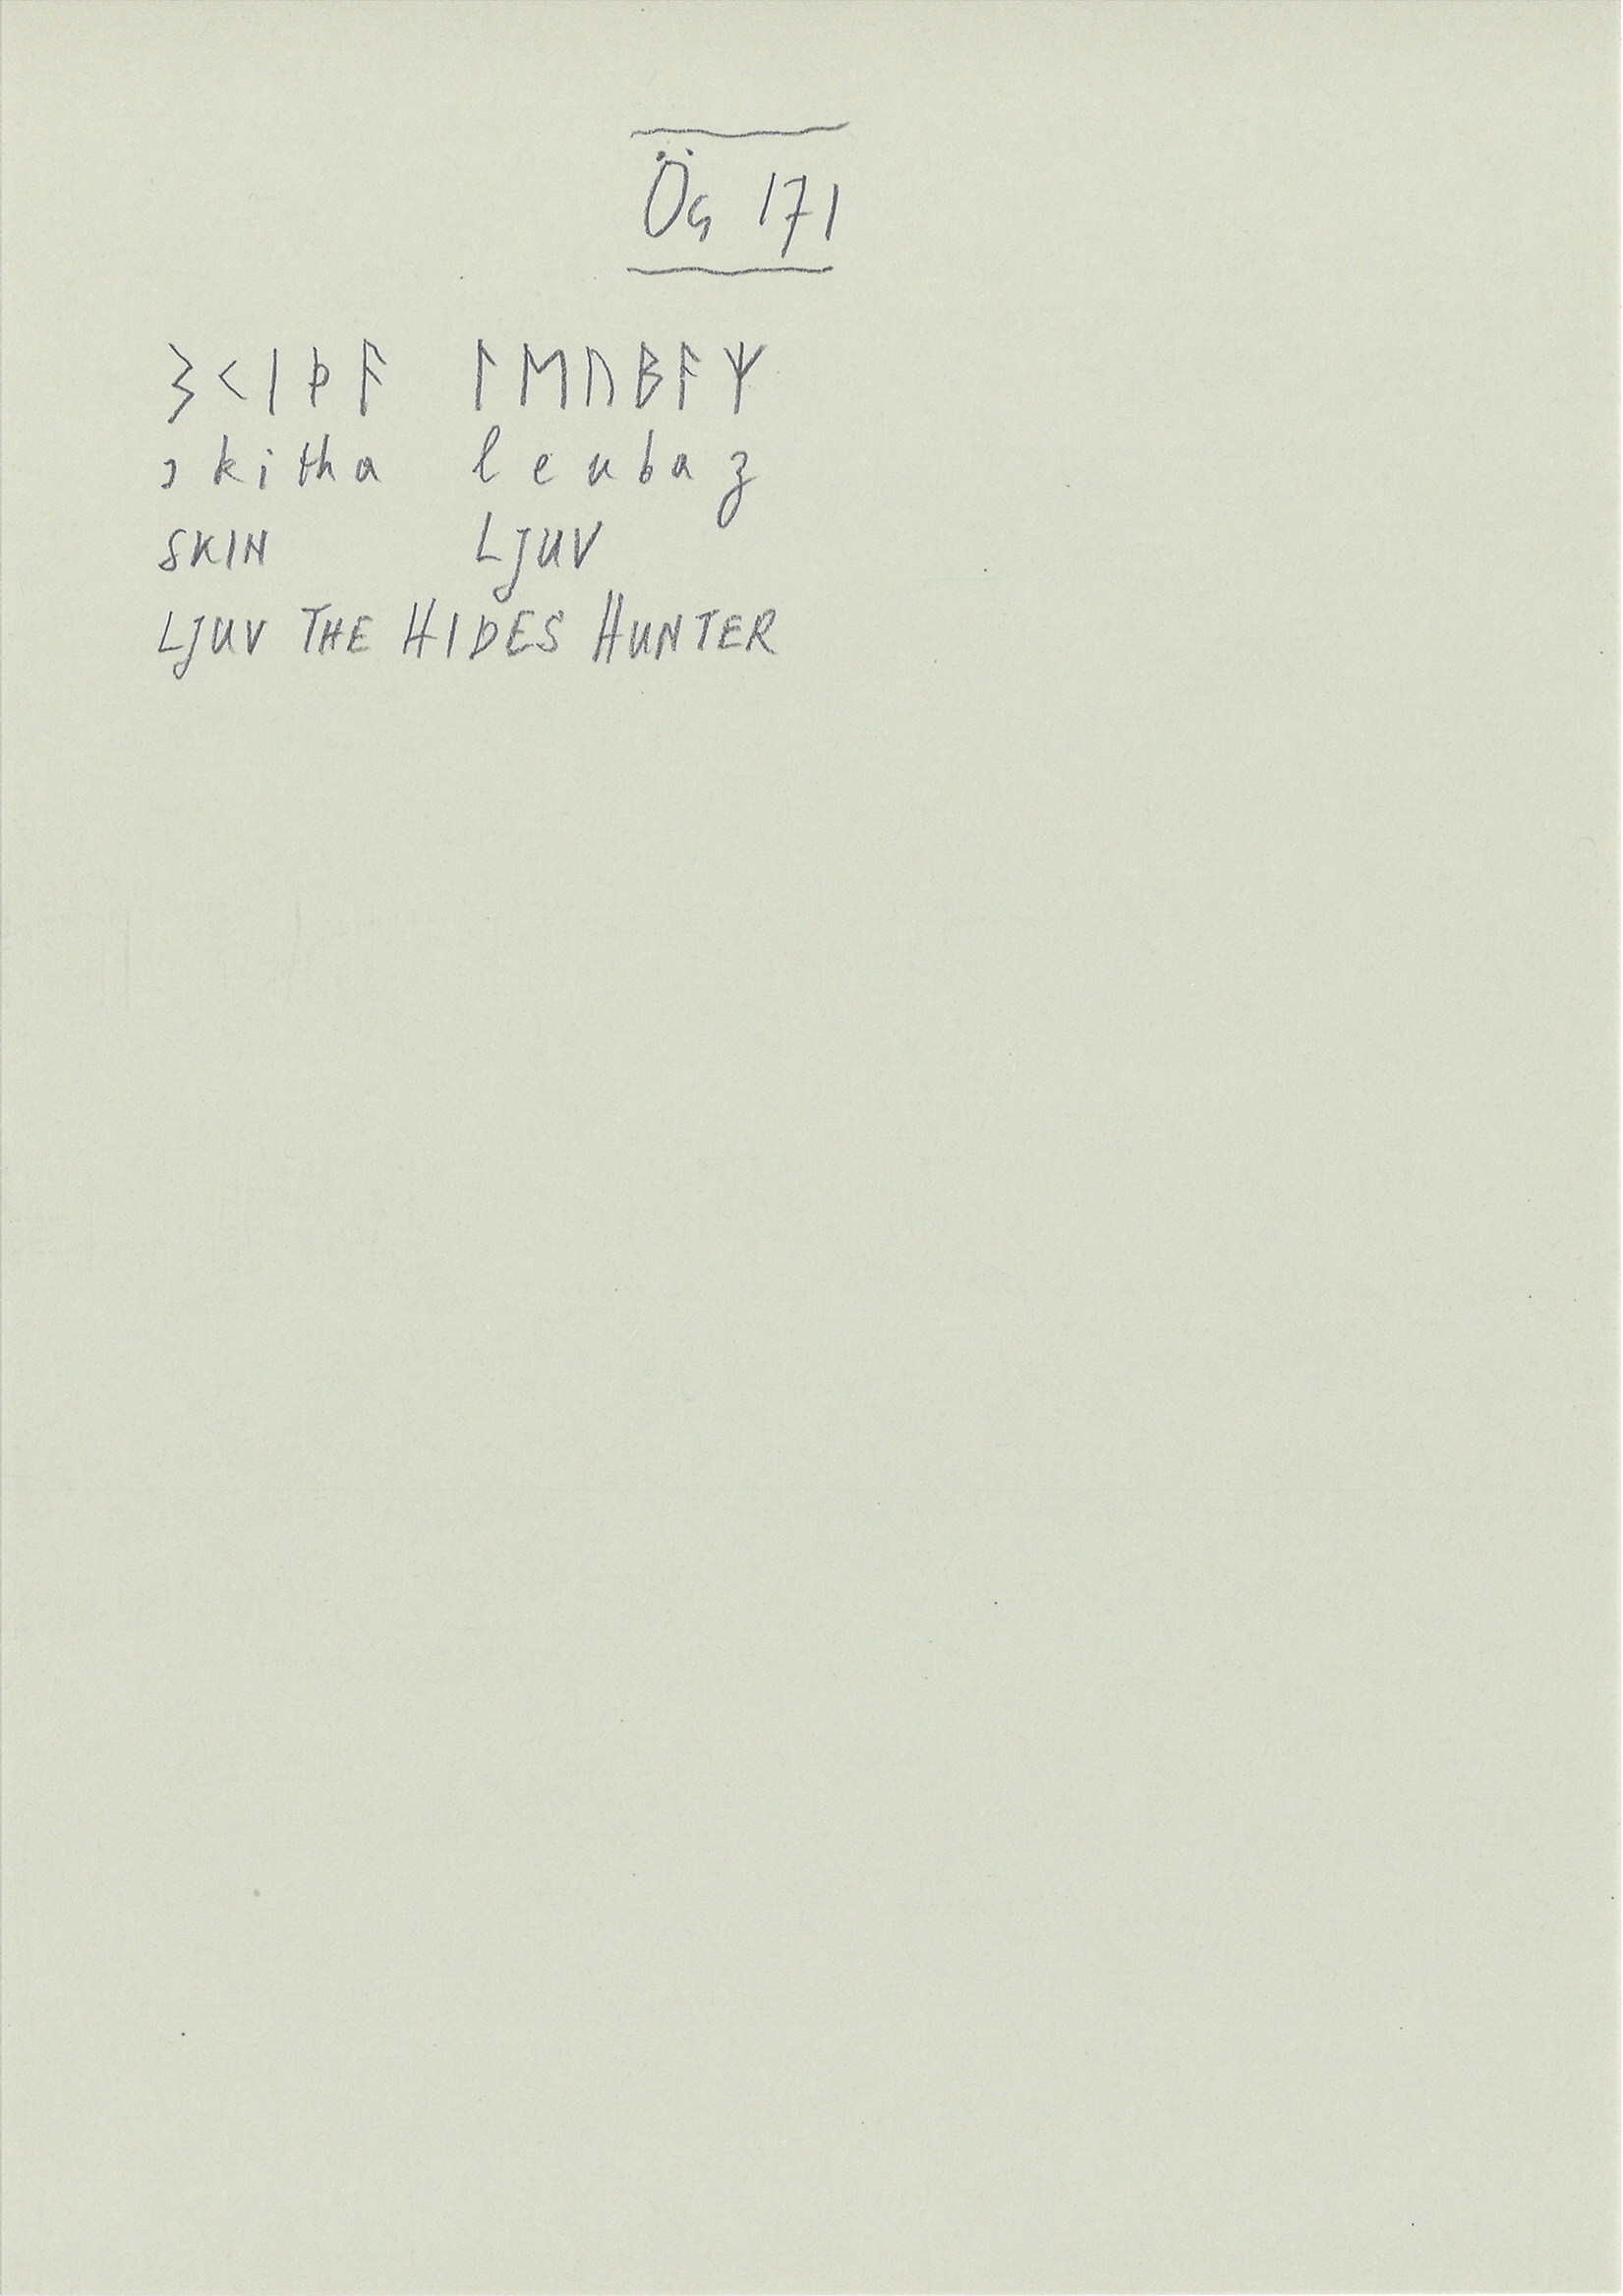 Ög 171
ᛊᚲᛁᚦᚨ ᛚᛖᚢᛒᚨᛉ
skitha leubaz
SKIN LJUV
LJUV THE HIDES HUNTER